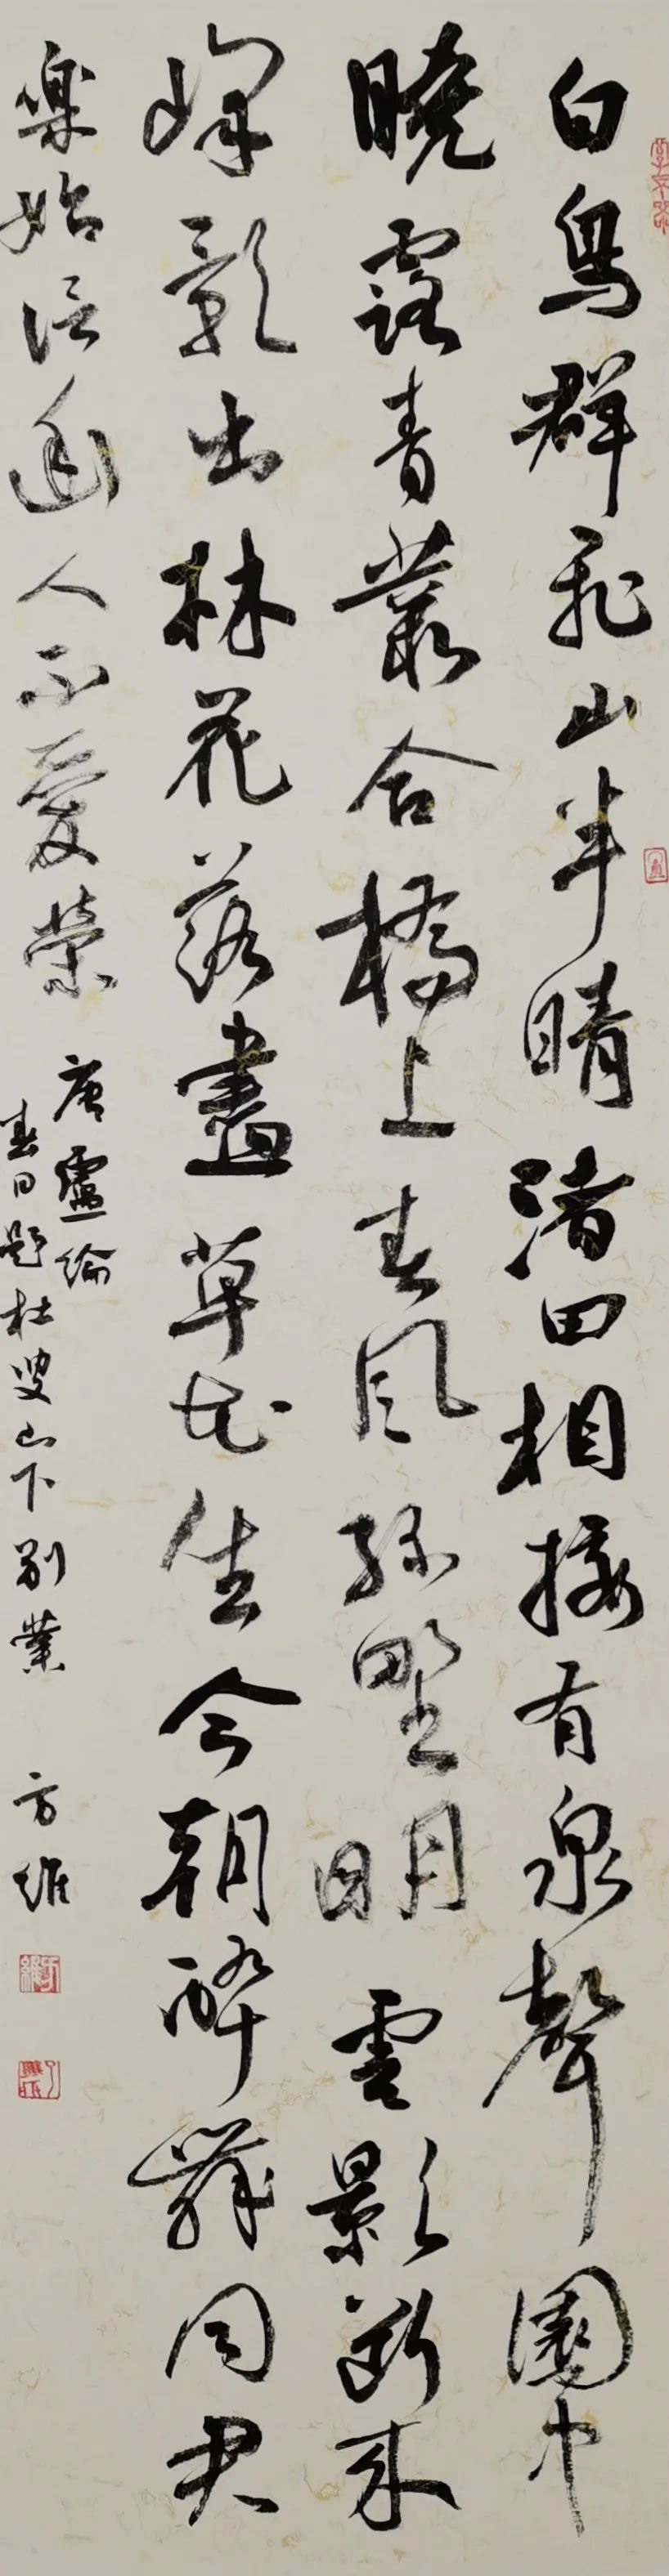 白鳥群飛山半晴渚田相接有泉聲園中
曉露青叢合橋上春風綠野明雲影斷來
峰影出林花落盡草花生今朝醉舞同君
樂始信幽人不愛榮
唐盧綸
春日題杜叟山下別業
方維